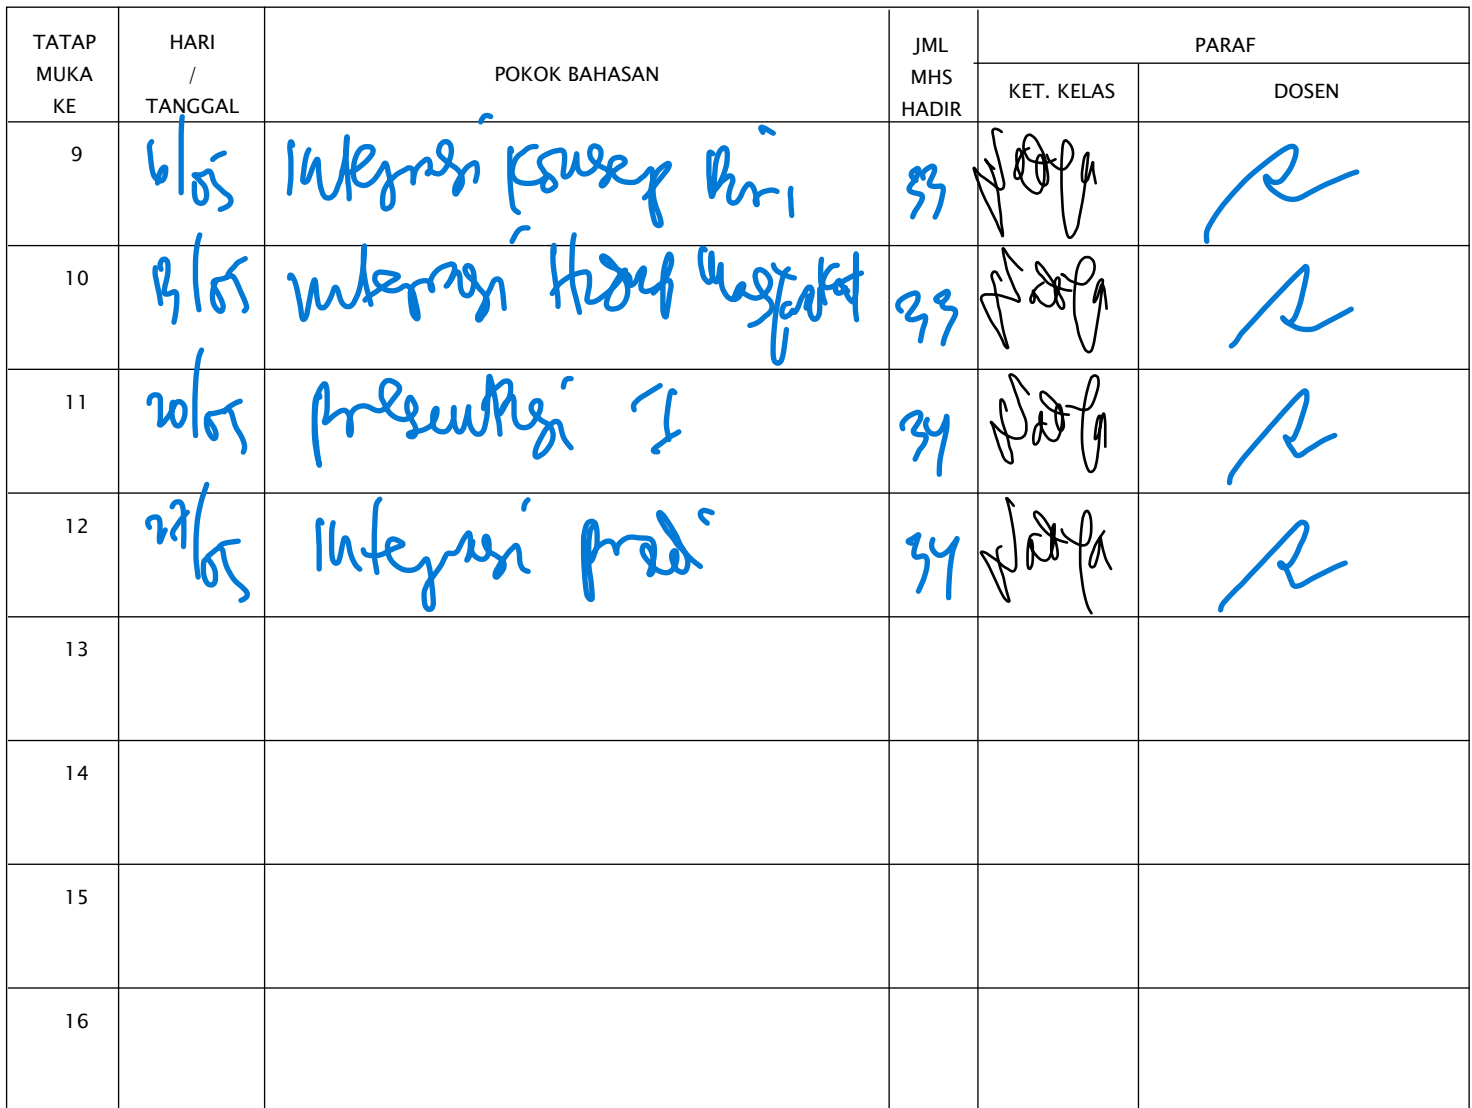 TATAP MUKA KE HARI / TANGGAL POKOK BAHASAN JML MHS HADIR PARAF
KET. KELAS DOSEN
9 6/05 Integrasi Konsep Diri 33
10 13/05 Integrasi Hidup Masyarakat 33
11 20/05 presentasi I 34
12 27/05 Integrasi prodi 34
13
14
15
16